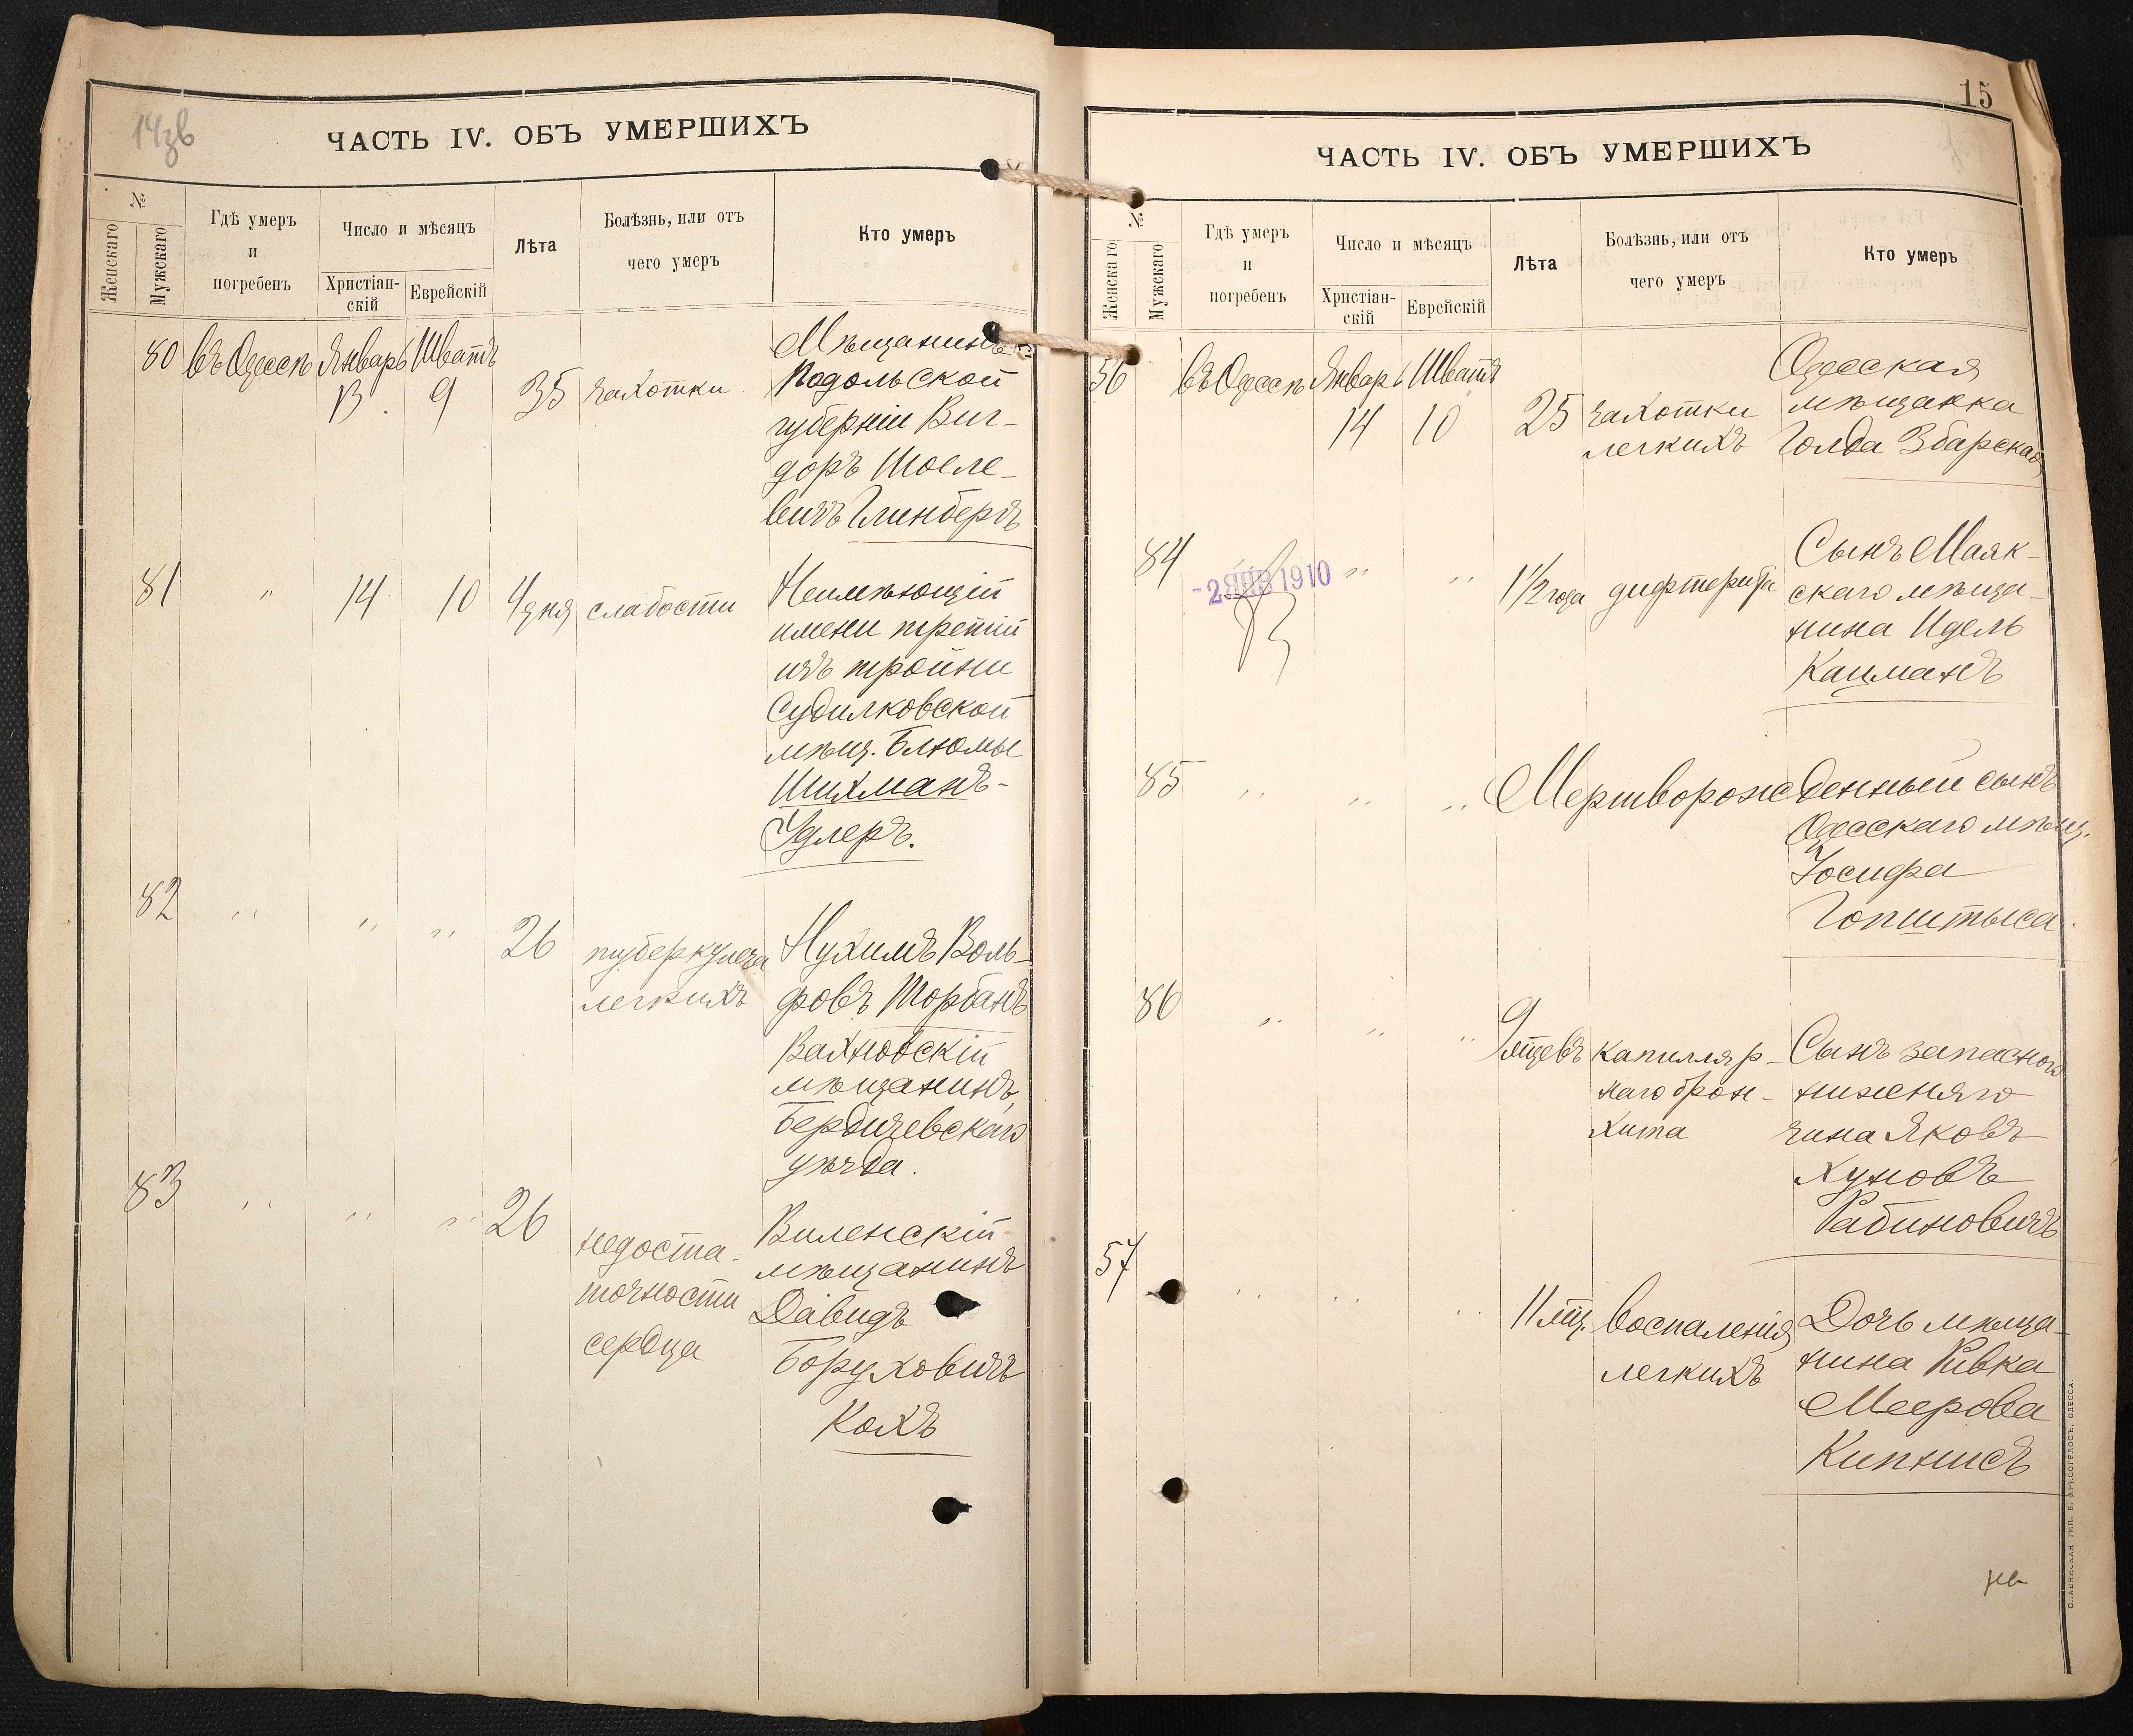 14зв
ЧАСТЬ IV. ОБЪ УМЕРШИХЪ
№
Женскаго
Мужскаго
Гдѣ умеръ
и
погребенъ
Число и мѣсяцъ
Христіан-
скій
Еврейскій
Лѣта
Болѣзнь, или отъ
чего умеръ
Кто умеръ
80 въ Одессѣ Январь Шватъ
13 9 35 чахотки
Мѣщанинъ
Подольской
губерніи Виг-
доръ Шоеле-
вичъ Глинбергъ
81 " 14 10 4 дня слабости
Неимѣющій
имени третій
изъ тройни
Судилковской
мѣщ. Блюмы
Шихманъ-
Удлеръ.
82 " " " 26 туберкулеза
легкихъ
Нухимъ Воль-
фовъ Торбанъ
Вахновскій
мѣщанинъ,
Бердичевскаго
уѣзда.
83 " " " 26
недоста-
точности
сердца
Виленскій
мѣщанинъ
Давидъ
Боруховичъ
Кохъ
15
ЧАСТЬ IV. ОБЪ УМЕРШИХЪ
№
Женскаго
Мужскаго
Гдѣ умеръ
и
погребенъ
Число и мѣсяцъ
Христіан-
скій
Еврейскій
Лѣта
Болѣзнь, или отъ
чего умеръ
Кто умеръ
56 въ Одессѣ Январь Шватъ
14 10 25 чахотки
легкихъ
Одесская
мѣщанка
Голда Збарская
84 " " 1½ года дифтерита
-2 ЯНВ 1910
Сынъ Маяк-
скаго мѣща-
нина Идель
Кацманъ
85 " " " Мертворожденный сынъ
Одесскаго мѣщ.
Іосифа
Гопштыса.
86 " " " 9 мѣсцевъ капилляр-
наго брон-
хита
Сынъ запаснаго
нижняго
чина Яковъ
Хуновъ
Рабиновичъ
57 " " " 11 мѣц. воспаленія
легкихъ
Дочь мѣща-
нина Ривка
Меерова
Кипнисъ